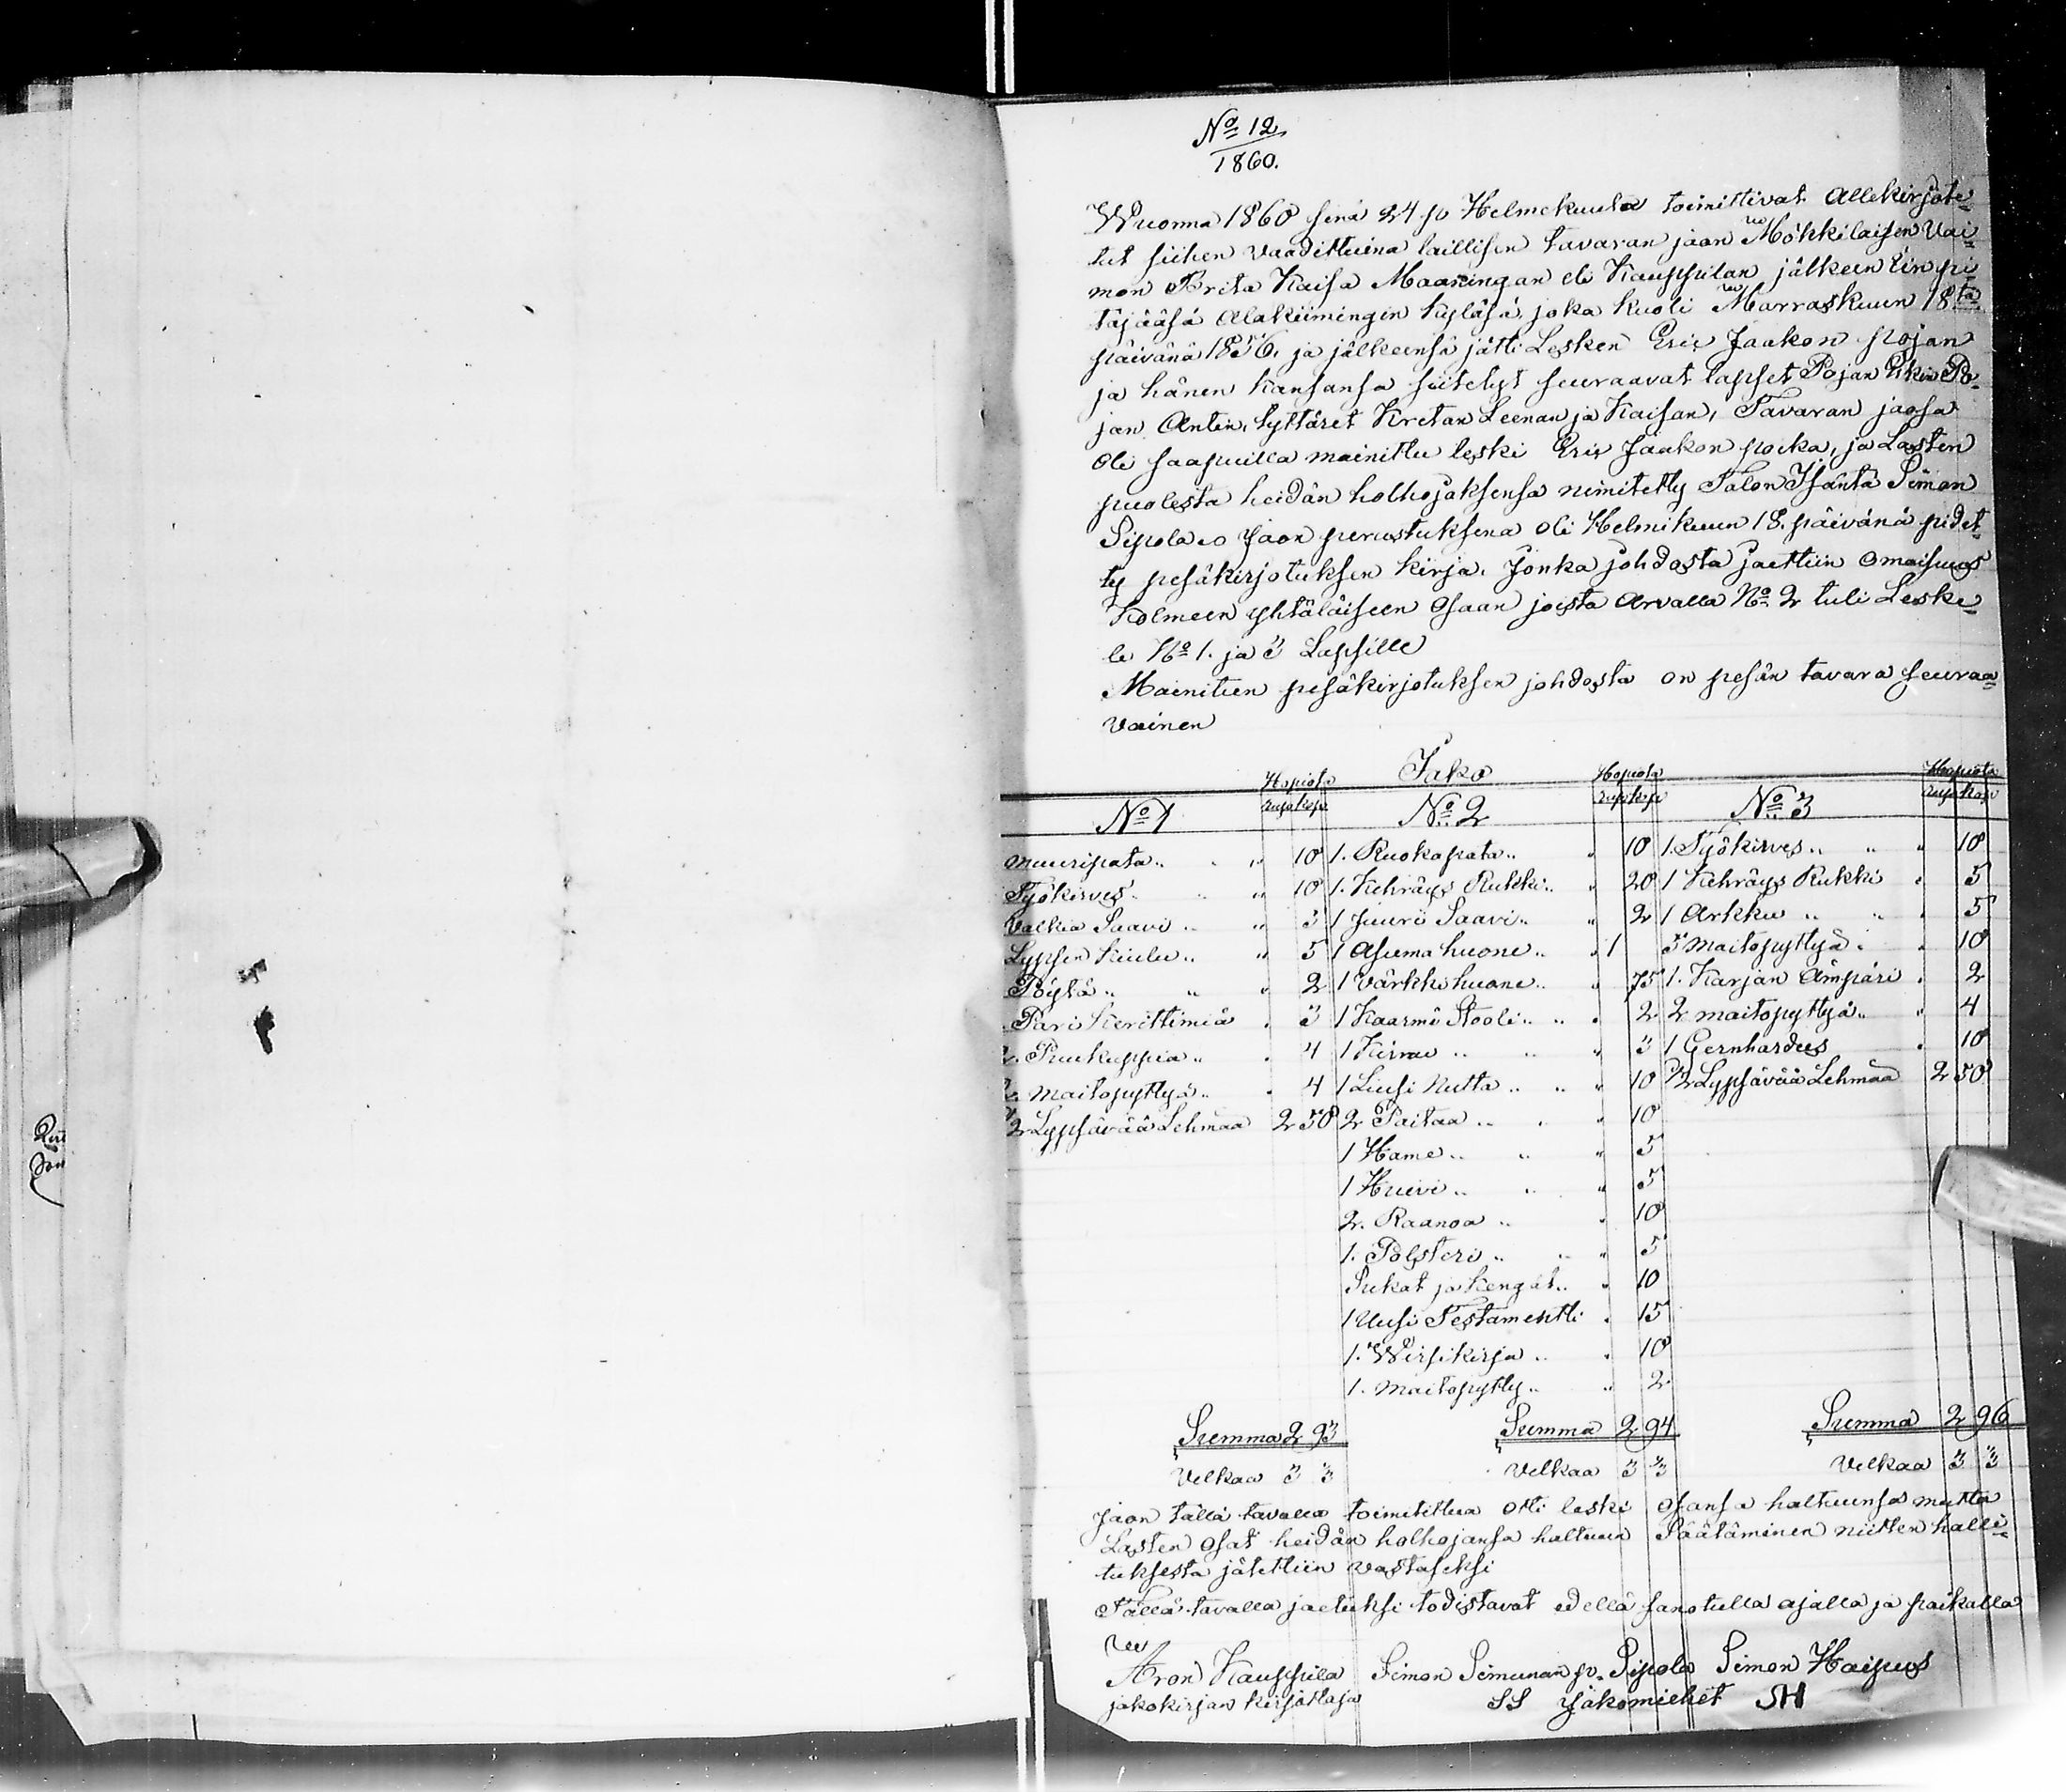 No 12
1860.
Wuonna 1860 sinä 24 p. Helmekuuta toimittivat Allekirjote-
tut siihen vaadittuina laillisen tavaran jaon Mökkiläisen Vai-
mon Brita Kaisa Maaningan eli Kauppilan jälkeen Iin pi-
täjääsä Alakiimingin kyläsä, joka kuoli Marraskuun 18ta
päivänä 1856. ja jälkeensä jätti Lesken Eric Jaakon pojan
ja hänen kansansa siitetyt seuraavat lapset Pojan Erkin Po-
jan Antin, tyttäret Kretan Leenan ja Kaisan, Tavaran jaosa
oli saapuilla mainittu leski Eric Jaakon poika, ja Lasten
puolesta heidän holhojaksensa nimitetty Talon Isäntä Simon
Sipola Jaon perustuksena oli Helmikuun 18. päivänä pidet-
ty pesäkirjotuksen kirja. Jonka johdosta jaettiin omaisuus
Kolmeen yhtäläiseen osaan joista Arvalla No 2 tuli Leske-
le No 1. ja 3 Lapsille
Mainitun pesäkirjotuksen johdosta on pesän tavara seuraa-
vainen
Jako
Hopiota Hopiota Hopiota
No 1 rup kop No 2 rup kop No 3 rup kop
muuripata „ „ 10 1. Ruokapata „ „ 10 1. Työkirves „ „ „ 10
Työkirves „ „ 10 1. Kehräys Rukki „ „ 20 1 Kehräys Rukki „ 5
Valkia Saavi „ „ 3 1 Juuri Saavi „ „ 2 1 Arkku „ „ 5
Lypsen Kiulu „ „ 5 1 Asuma huone „ „ 1 5 maitopyttyä „ „ 10
Pöytä „ „ „ 2 1 Värkki huone „ „ 75 1. Karjan Ämpäri „ 2
Pari Kerittimiä „ 3 1 Kaarmi Stooli „ „ „ 2 2 maitopyttyä „ „ 4
2. Puukuppia „ „ 4 1 Kirnu „ „ „ 3 1 Gernhardus „ 10
2. Maitopyttyä „ „ 4 1 Liusi Nutta „ „ „ 10 1/2 Lypsävää Lehmää 2 50
1/2 Lypsävää Lehmää 2 50 2 Paitaa „ „ „ 10
1 Hame „ „ „ 5
1 Huivi „ „ „ 5
2. Raanoa „ „ 10
1. Polsteri „ „ „ 5
Sukat ja Kengät „ „ 10
1 Uusi Testamentti „ 15
1. Wirsikirja „ „ 10
1. maitopytty „ „ 2
Summa 2 93 Summa 2 94 Summa 2 96
Velkaa 3 3 Velkaa 3 3 Velkaa 3 3
Jaon tällä tavalla toimitettua otti leski osansa haltuunsa mutta
Lasten osat heidän holhojansa haltuun Säätäminen niitten halli-
tuksesta jätettiin vastaseksi
Tällä tavalla jaetuksi todistavat edellä sanotulla ajalla ja paikalla
Aron Kauppila Simon Simunan p. Sipola Simon Haipus
jakokirjan kirjottaja SS jakomiehet SH